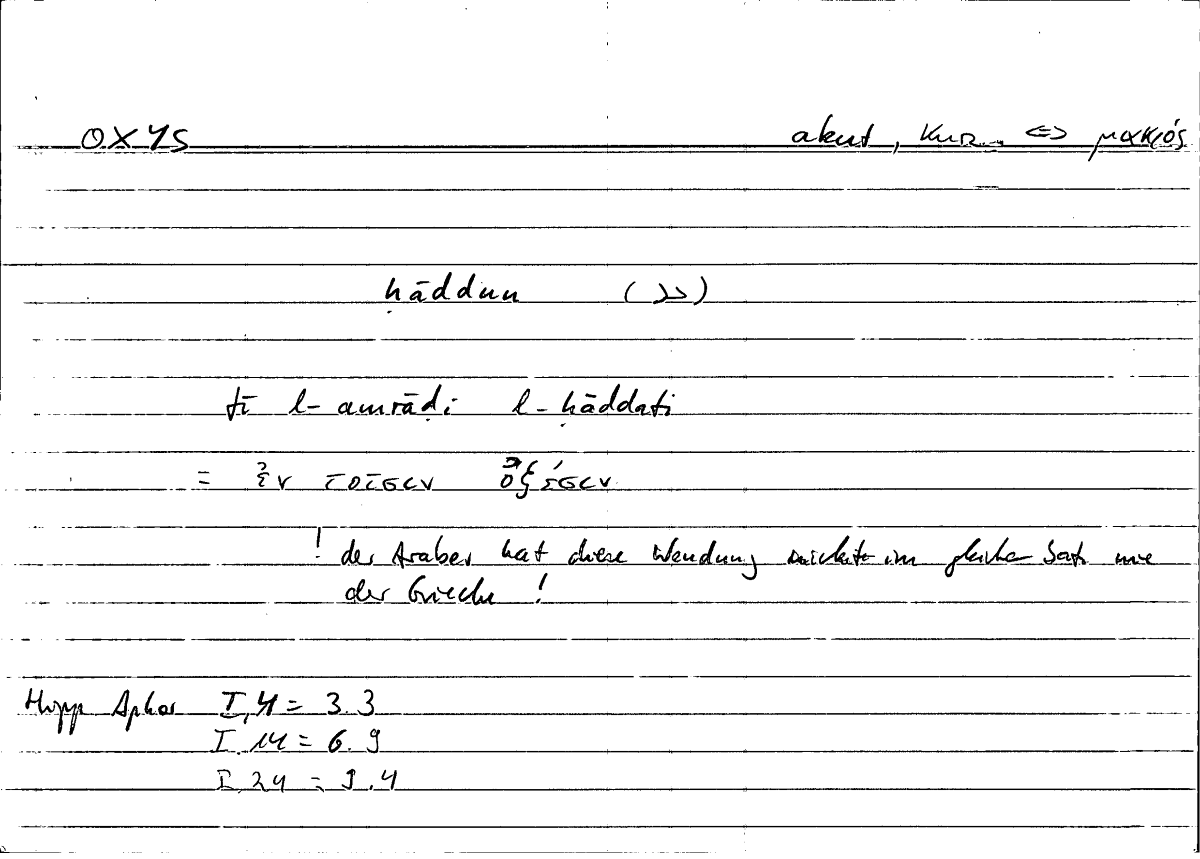 OXYS akut, kurz ⇔ μακρός
ḥāddun (حد)
fī l-amrāḍi l-ḥāddati
= ἐν τοῖσιν ὀξέσιν
! der Araber hat diese Wendung nicht im gleichen Satz wie
der Grieche !
Hipp Aphor I, 4 = 3.3
I. 14 = 6. 9
I. 24 = 9.4